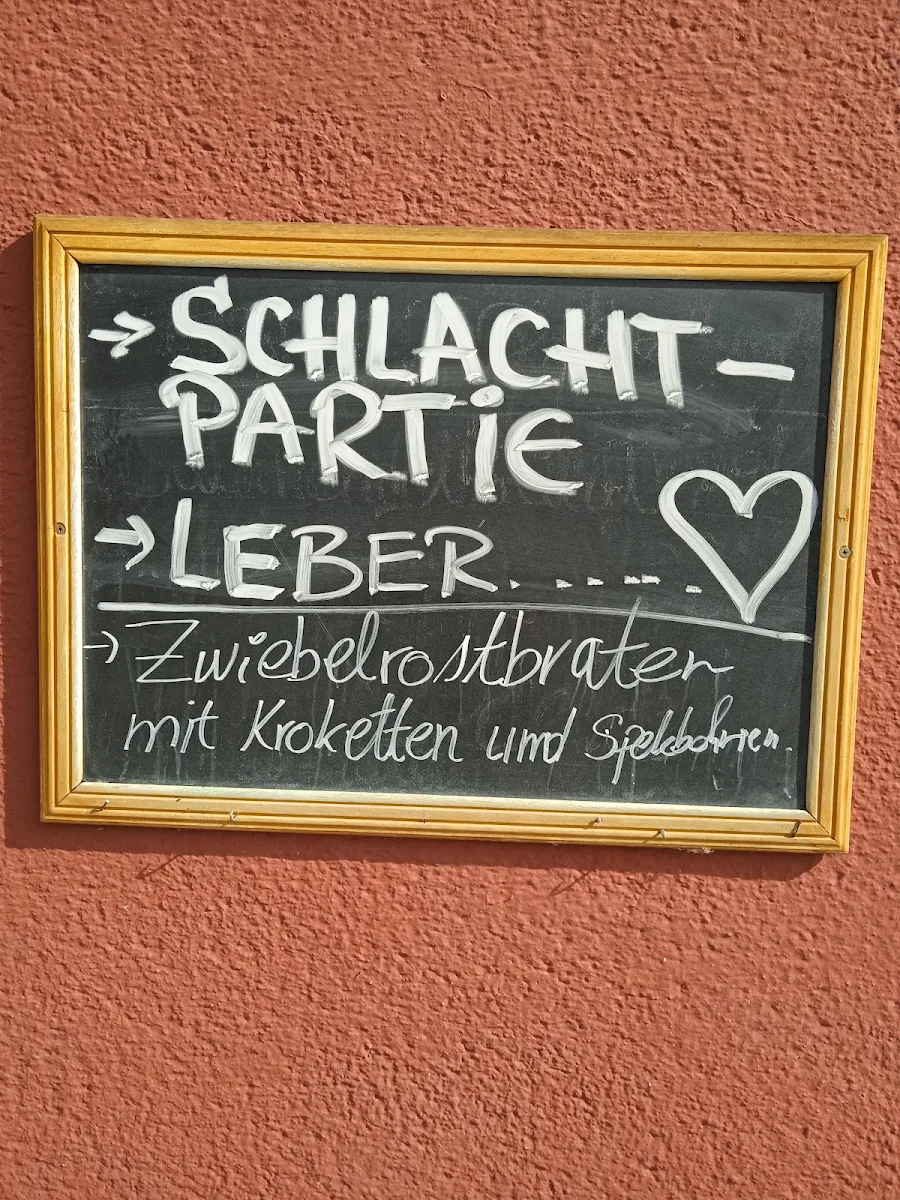 → SCHLACHT-
PARTiE
→ LEBER. . . . . .
→ Zwiebelrostbraten
mit Kroketten und Spekbohnen.